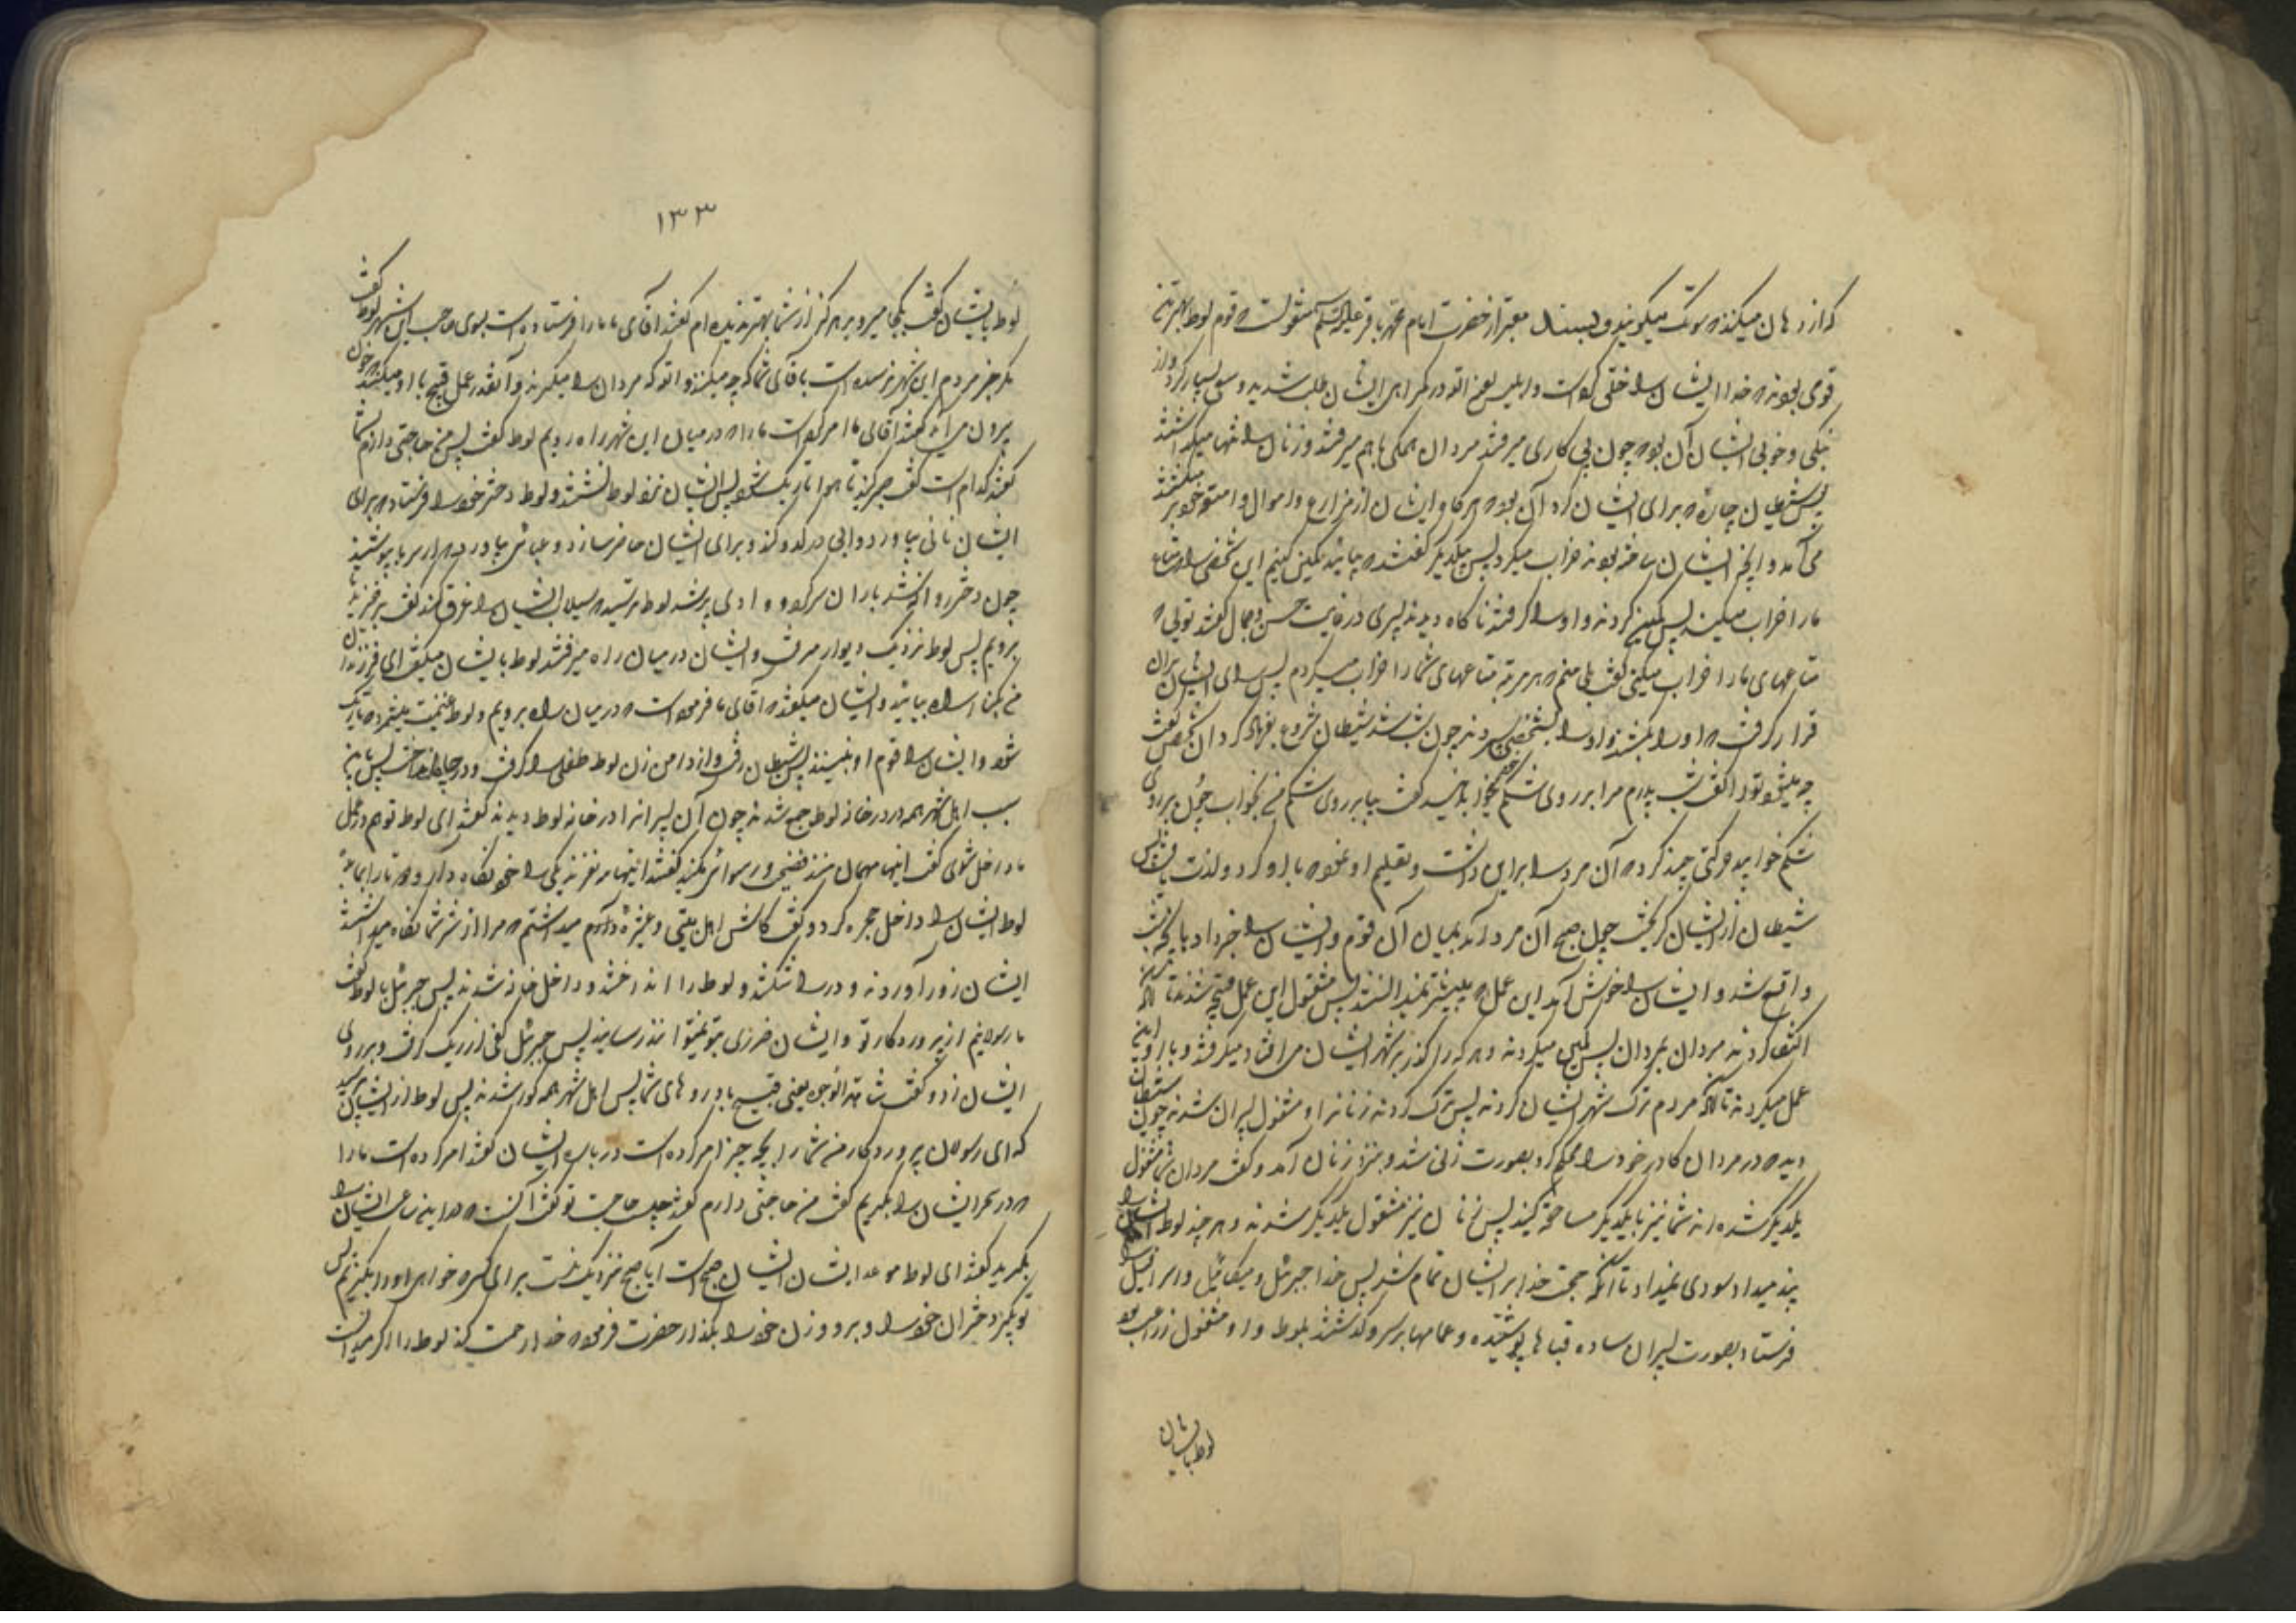 که از دهان میکنند که سوتک میگویند و بسند معتبر از حضرت امام محمد باقر علیه السلام منقولست که قوم لوط بهترین
قومی بودند که خدا ایشان را خلق کرده است و ابلیس لعنه الله در گمراهی ایشان طلب شدید و سعی بسیار کرد و از
نیکی و خوبی ایشان آن بود که چون پی کاری میرفتند مردان همگی با هم میرفتند و زنان را تنها میگذاشتند
پس شیطان چاره که برای ایشان کرد آن بود که هرگاه ایشان از مزارع و اموال و امتعه خود بر میگشتند
می‌آمد و آنچه ایشان ساخته بودند خراب میکرد پس بیکدیگر گفتند که بیائید کمین کنیم این شخص را که متاع
ما را خراب میکند پس کمین کردند و او را گرفتند ناگاه دیدند پسری در غایت حسن و جمال گفتند توئی که
متاعهای ما را خراب میکنی گفت بلی منم که هر مرتبه متاعهای شما را خراب میکردم پس رای ایشان بر آن
قرار گرفت که او را بکشند و او را بشخصی سپردند چون شب شد شیطان شروع بفریاد کرد آن شخص گفت
چه میشود تو را گفت شب پدرم مرا بر روی شکم خود میخوابانید گفت بیا بر روی شکم من بخواب چون بر روی
شکم خوابید حرکتی چند کرد که آن مرد را بر این داشت و تعلیم او نمود که با او کرد و لذت یافت پس
شیطان از ایشان گریخت چون صبح آن مرد آمد بمیان آن قوم و ایشان را خبر داد بآنچه شب
واقع شد و ایشان را خوش آمد این عمل که پیشتر نمیدانستند پس مشغول این عمل قبیح شدند تا آنکه
اکتفا کردند مردان بمردان پس کمین میکردند و هر که را گذر بشهر ایشان می افتاد میگرفتند و با او این
عمل میکردند تا آنکه مردم ترک شهر ایشان کردند پس ترک کردند زنانرا و مشغول پسران شدند چون شیطان
دید که در مردان کار خود را محکم کرد بصورت زنی شد و بنزد زنان آمد و گفت مردان شما مشغول
یکدیگر شده اند شما نیز با یکدیگر مساحقه کنید پس زنان نیز مشغول یکدیگر شدند و هر چند لوط ایشان را
پند میداد سودی نمیداد تا آنکه حجت خدا بر ایشان تمام شد پس خدا جبرئیل و میکائیل و اسرافیل را
فرستاد بصورت پسران ساده قباها پوشیده و عمامها بر سر و گذشتند بلوط و او مشغول زراعت بود
لوط بایشان
۱۳۳
لوط بایشان گفت بکجا میروید هرگز از شما بهتر ندیده ام گفتند آقای ما ما را فرستاده است بسوی صاحب این شهر لوط گفت
مگر خبر مردم این شهر نرسیده است بآقای شما که چه میکنند والله که مردان را میگیرند و آنقدر عمل قبیح با او میکنند که خون
بیرون می‌آید گفتند آقای ما امر کرده است ما را که در میان این شهر راه رویم لوط گفت پس من حاجتی دارم بشما
گفتند کدام است گفت صبر کنید تا هوا تاریک شود پس ایشان نزد لوط نشستند و لوط دختر خود را فرستاد که برای
ایشان نانی بیاورد و آبی در کدو کند و برای ایشان حاضر سازد و عبائی بیاورد که در سرما بپوشند
چون دختر روانه شد باران سر کرد و وادی پر شد لوط ترسید که سیلاب ایشان را غرق کند گفت برخیزید تا
برویم پس لوط نزدیک دیوار میرفت و ایشان در میان راه میرفتند لوط بایشان میگفت ای فرزندان
من بکنار راه بیائید و ایشان میگفتند که آقای ما فرموده است که در میان راه برویم و لوط غنیمت میشمرد که تاریک
شود و ایشان را قوم او نبینند پس شیطان رفت و از دامن زن لوط طفلی را گرفت و در چاه انداخت پس باین
سبب اهل شهر همه در در خانه لوط جمع شدند چون آن پسرانرا در خانه لوط دیدند گفتند ای لوط تو هم در عمل
ما داخل شدی گفت اینها مهمان منند فضیحت و رسوائی مکنید گفتند اینها سه نفرند یکی را خود نگاه دار و دو تا را بما بده
لوط ایشان را داخل حجره کرد و گفت کاش اهل بیتی و عشیره میداشتم که مرا از شر شما نگاه میداشتند
ایشان زور آوردند و در را شکستند و لوط را انداختند و داخل خانه شدند پس جبرئیل بلوط گفت
ما رسولانیم از پروردگار تو و ایشان ضرری بتو نمیتوانند رسانید پس جبرئیل کفی از ریگ گرفت و بر روی
ایشان زد و گفت شاهت الوجوه یعنی قبیح باد روهای شما پس اهل شهر همه کور شدند پس لوط از ایشان پرسید
که ای رسولان پروردگار من شما را بچه چیز امر کرده است در باب ایشان گفتند امر کرده است ما را
که در سحر ایشان را بگیریم گفت من حاجتی دارم گفتند چیست حاجت تو گفت آنست که در این ساعت ایشان را
بگیرید گفتند ای لوط موعد ایشان صبح است آیا صبح نزدیک نیست برای کسی که خواهی او را بگیریم پس
تو بگیر دختران خود را و برو و زن خود را بگذار حضرت فرمود که خدا رحمت کند لوط را اگر میدانست